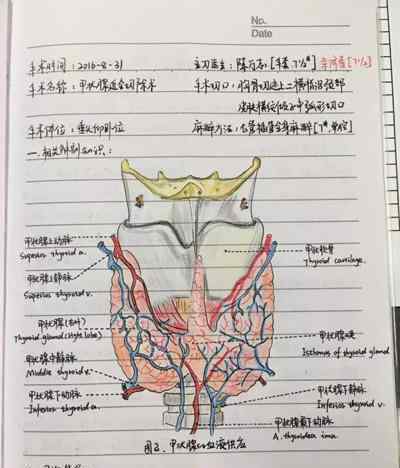 No.
Date
手术时间：2016-8-31
主刀医生：陈 [手套 7½#] [7½]
手术名称：甲状腺近全切除术
手术切口：胸骨切迹上二横指沿颈部
皮肤横纹做 弧形切口
手术体位：垂头仰卧位
麻醉方法：气管插管全身麻醉 [7#单腔]
一、相关解剖知识：
甲状腺上动脉
Superior thyroid a.
甲状腺上静脉
Superior thyroid v.
甲状腺(右叶)
Thyroid gland (right lobe)
甲状腺中静脉
Middle thyroid v.
甲状腺下动脉
Inferior thyroid a.
甲状软骨
Thyroid cartilage.
甲状腺峡
Isthmus of thyroid gland
甲状腺下静脉
Inferior thyroid v.
甲状腺最下动脉
A. thyroidea ima.
甲状腺的血液供应